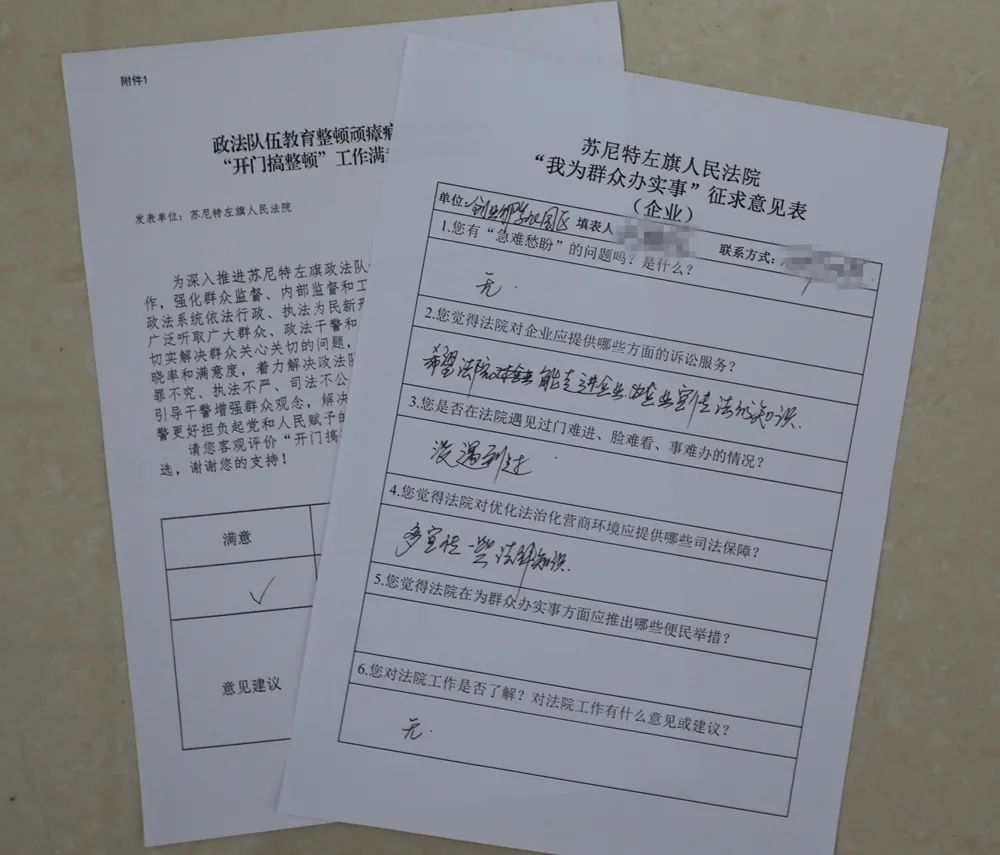 附件1
政法队伍教育整顿顽瘴
“开门搞整顿”工作满
发表单位：苏尼特左旗人民法院
为深入推进苏尼特左旗政法队
作，强化群众监督、内部监督和工
政法系统依法行政、执法为民新
广泛听取广大群众、政法干警和
切实解决群众关心关切的问题，
晓率和满意度，着力解决政法队
罪不究、执法不严、司法不公
引导干警增强群众观念，解决
警更好担负起党和人民赋予的
请您客观评价“开门搞
选，谢谢您的支持！
满意
✓
意见建议
苏尼特左旗人民法院
“我为群众办实事”征求意见表
（企业）
单位：创业 园区 填表人 联系方式：
1.您有“急难愁盼”的问题吗？是什么？
无.
2.您觉得法院对企业应提供哪些方面的诉讼服务？
希望法院 能走进企业，为企业宣传法律知识.
3.您是否在法院遇见过门难进、脸难看、事难办的情况？
没遇到过
4.您觉得法院对优化法治化营商环境应提供哪些司法保障？
多宣传一些法律知识.
5.您觉得法院在为群众办实事方面应推出哪些便民举措？
6.您对法院工作是否了解？对法院工作有什么意见或建议？
无.